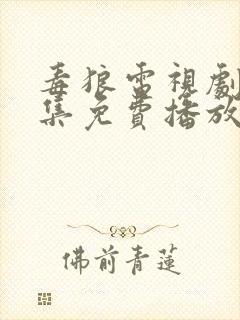 毒狼雷視劇
集免費播放
佛前青蓮